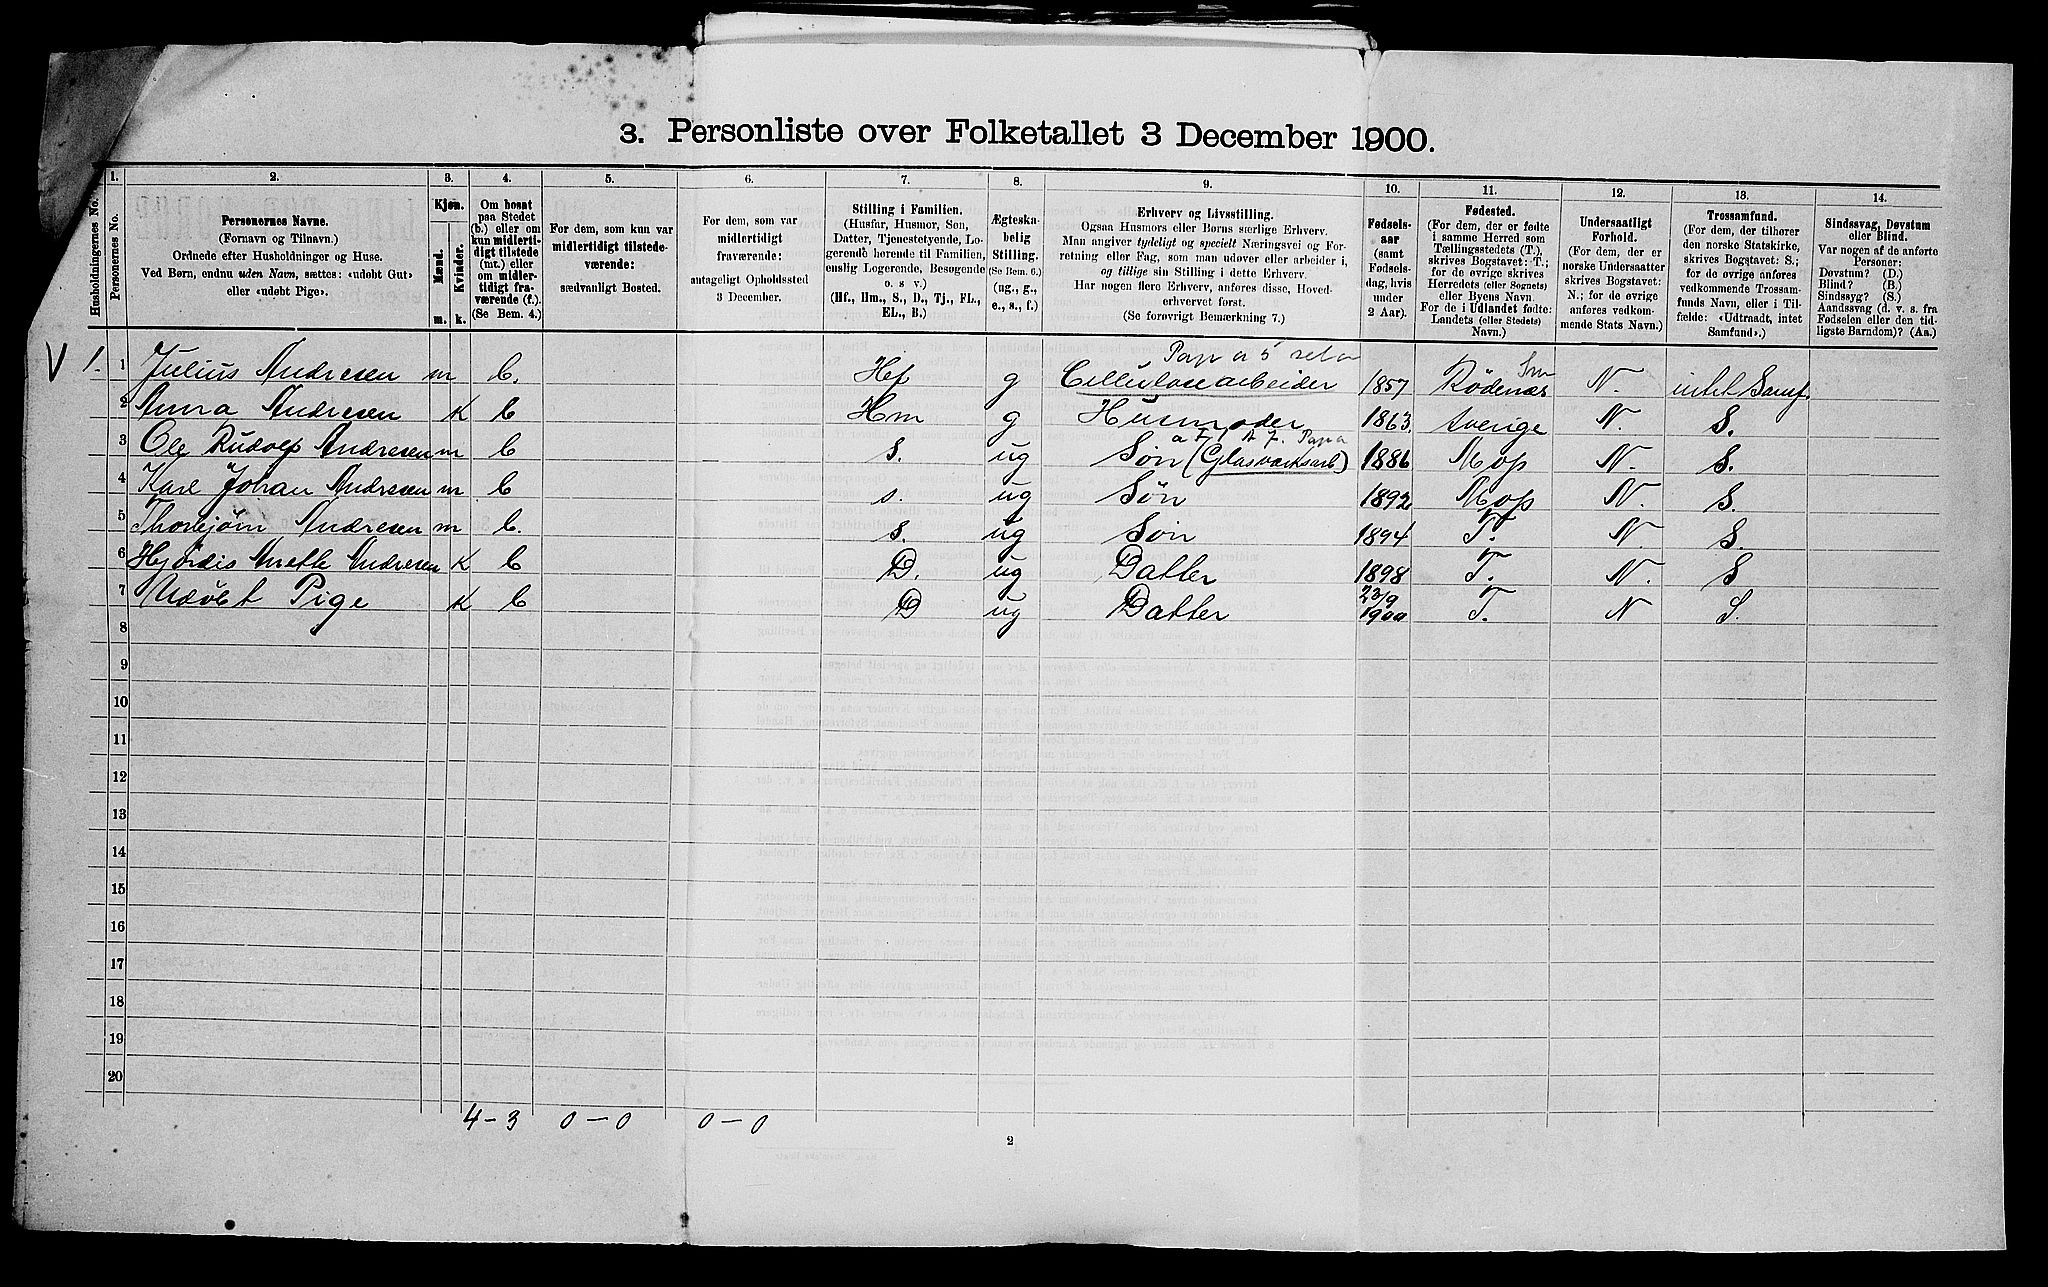 3. Personliste over Folketallet 3 December 1900.
Husholdningernes No.
1.
Personernes No.
2.
Personernes Navne.
(Fornavn og Tilnavn.)
Ordnede efter Husholdninger og Huse.
Ved Børn, endnu uden Navn, sættes: «udøbt Gut»
eller «udøbt Pige».
3.
Kjøn.
Mænd.
Kvinder.
m.
k.
4.
Om bosat
paa Stedet
(b.) eller om
kun midlerti-
digt tilstede
(mt.) eller
om midler-
tidigt fra-
værende (f.).
(Se Bem. 4.)
5.
For dem, som kun var
midlertidigt tilstede-
værende:
sædvanligt Bosted.
6.
For dem, som var
midlertidigt
fraværende:
antageligt Opholdssted
3 December.
7.
Stilling i Familien.
(Husfar, Husmor, Søn,
Datter, Tjenestetyende, Lo-
gerende hørende til Familien,
enslig Logerende, Besøgende
o. s. v.)
(Hf., Hm., S., D., Tj., FL.,
EL., B.)
8.
Ægteska-
belig
Stilling.
(Se Bem. 6.)
(ug., g.,
e., s., f.)
9.
Erhverv og Livsstilling.
Ogsaa Husmors eller Børns særlige Erhverv.
Man angiver tydeligt og specielt Næringsvei og For-
retning eller Fag, som man udøver eller arbeider i,
og tillige sin Stilling i dette Erhverv.
Har nogen flere Erhverv, anføres disse, Hoved-
erhvervet først.
(Se forøvrigt Bemærkning 7.)
10.
Fødsels-
aar
(samt
Fødsels-
dag, hvis
under
2 Aar).
11.
Fødested.
(For dem, der er fødte
i samme Herred som
Tællingsstedets (T.),
skrives Bogstavet: T.;
for de øvrige skrives
Herredets (eller Sognets)
eller Byens Navn.
For de i Udlandet fødte:
Landets (eller Stedets)
Navn.)
12.
Undersaatligt
Forhold.
(For dem, der er
norske Undersaatter
skrives Bogstavet:
N.; for de øvrige
anføres vedkom-
mende Stats Navn.)
13.
Trossamfund.
(For dem, der tilhører
den norske Statskirke,
skrives Bogstavet: S.;
for de øvrige anføres
vedkommende Trossam-
funds Navn, eller i Til-
fælde: «Udtraadt, intet
Samfund».)
14.
Sindssvag, Døvstum
eller Blind.
Var nogen af de anførte
Personer:
Døvstum? (D.)
Blind? (B.)
Sindssyg? (S.)
Aandssvag (d. v. s. fra
Fødselen eller den tid-
ligste Barndom)? (Aa.)
V 1. 1 Julius Andresen m b. Hf g Cellulosearbeider 1857 Rödenæs N. intet Samf.
2 Anna Andresen K b Hm g Husmoder 1863. Sverige N. S.
3 Ole Rudolf Andresen m b S. ug Søn (Glasværksarb) 1886 Moss N. S.
4 Karl Johan Andresen m b s. ug Søn 1892 Moss N. S.
5 Thorbjørn Andresen m b. S. ug Søn 1894 T. N. S.
6 Hjördis Anette Andresen K b D. ug Datter 1898 T. N. S
7 Udöbt Pige K b D ug Datter 23/9 1900 T. N S.
8
9
10
11
12
13
14
15
16
17
18
19
20
4-3 0-0 0-0
2